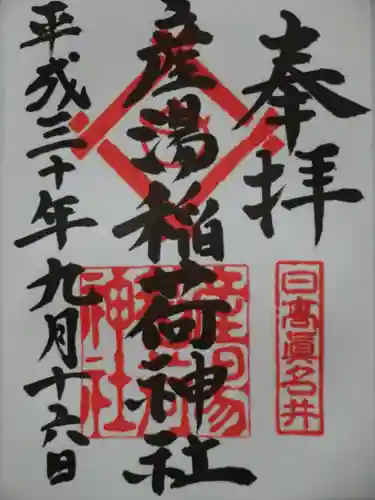 奉拝
日高眞名井
産湯稲荷神社
産湯稲荷神社
平成三十年九月十六日